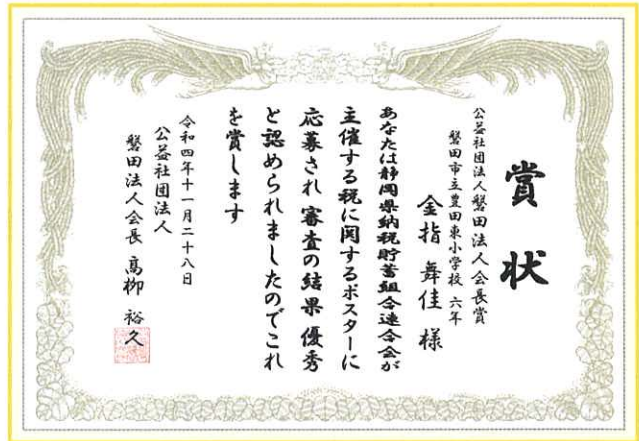 賞状
公益社団法人磐田法人会長賞
磐田市立豊田東小学校 六年
金指 舞佳 様
あなたは静岡県納税貯蓄組合連合会が
主催する税に関するポスターに
応募され 審査の結果 優秀
と認められましたのでこれ
を賞します
令和四年十一月二十八日
公益社団法人
磐田法人会長 高柳 裕久